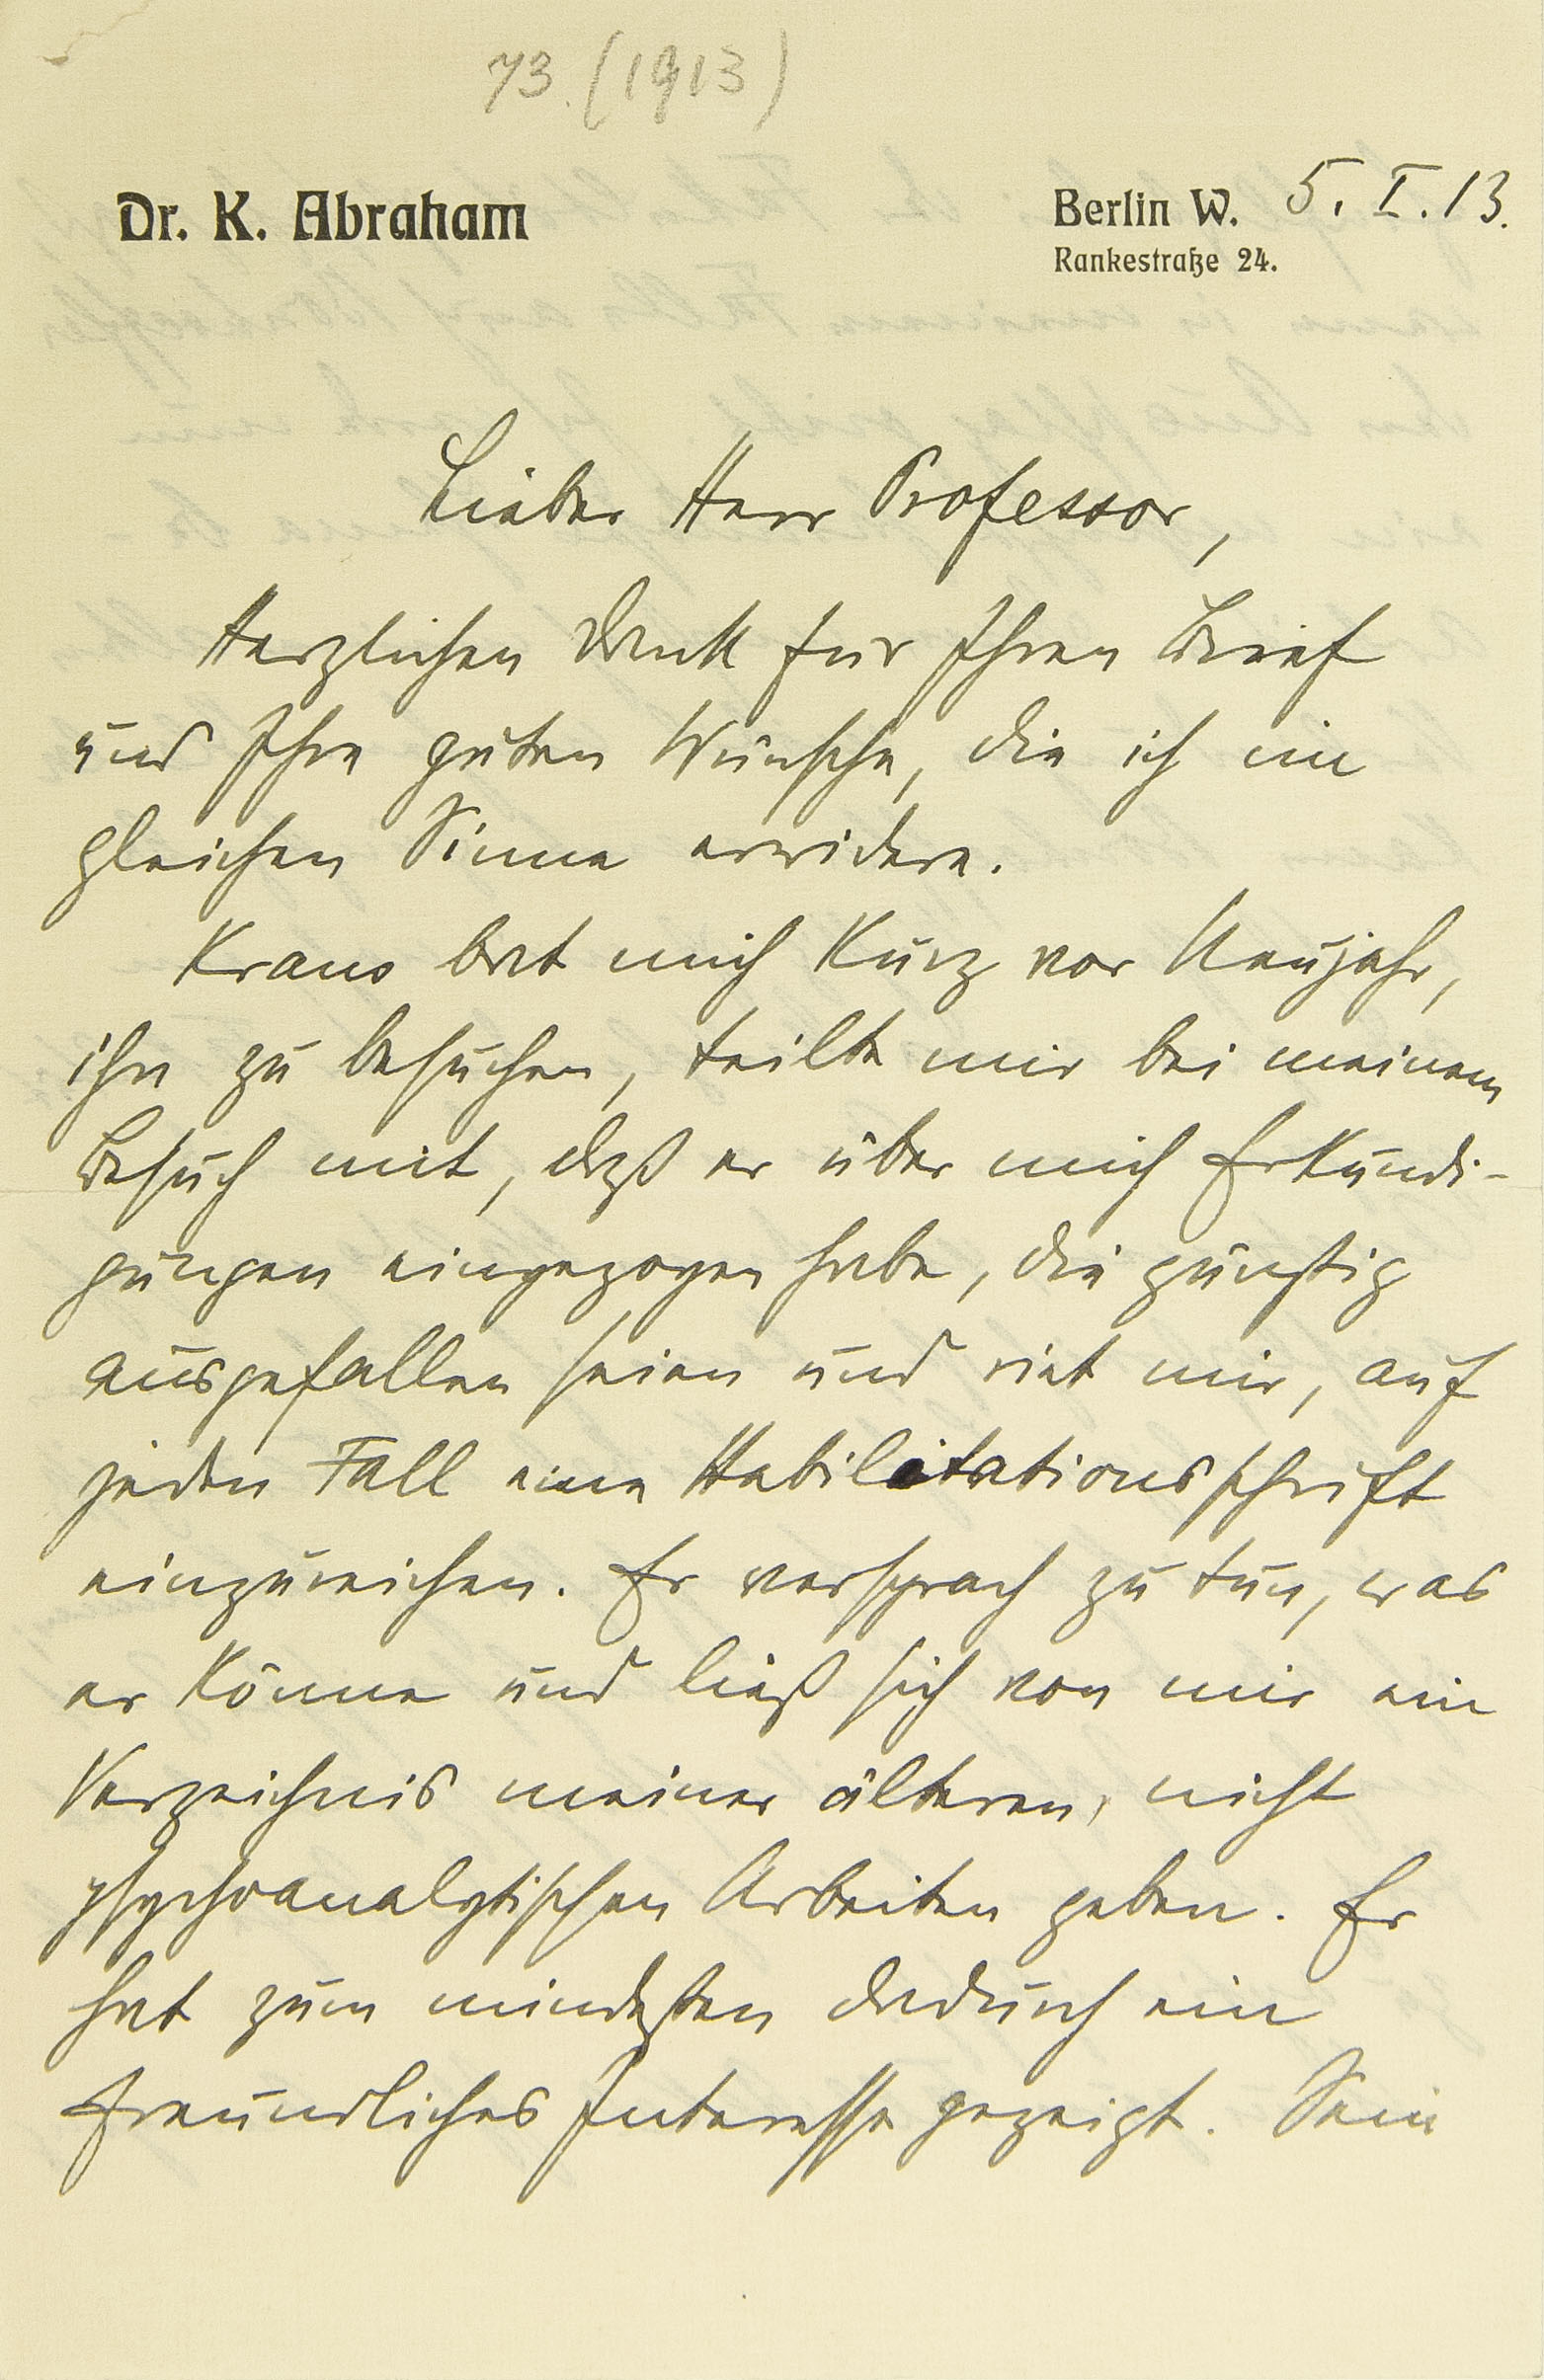 73. (1913)
Dr. K. Abraham
Berlin W. 5. I. 13.
Rankestraße 24.
Lieber Herr Professor,
Herzlichen Dank für Ihren Brief
und Ihre guten Wünsche, die ich im
gleichen Sinne erwidere.
Kraus bat mich kurz vor Neujahr,
ihn zu besuchen, teilte mir bei meinem
Besuch mit, daß er über mich Erkundi-
gungen eingezogen habe, die günstig
ausgefallen seien und riet mir, auf
jeden Fall eine Habilitationsschrift
einzureichen. Er versprach zu tun, was
er könne und ließ sich von mir ein
Verzeichnis meiner älteren, nicht
psychoanalytischen Arbeiten geben. Er
hat zum mindesten dadurch ein
freundliches Interesse gezeigt. Sein